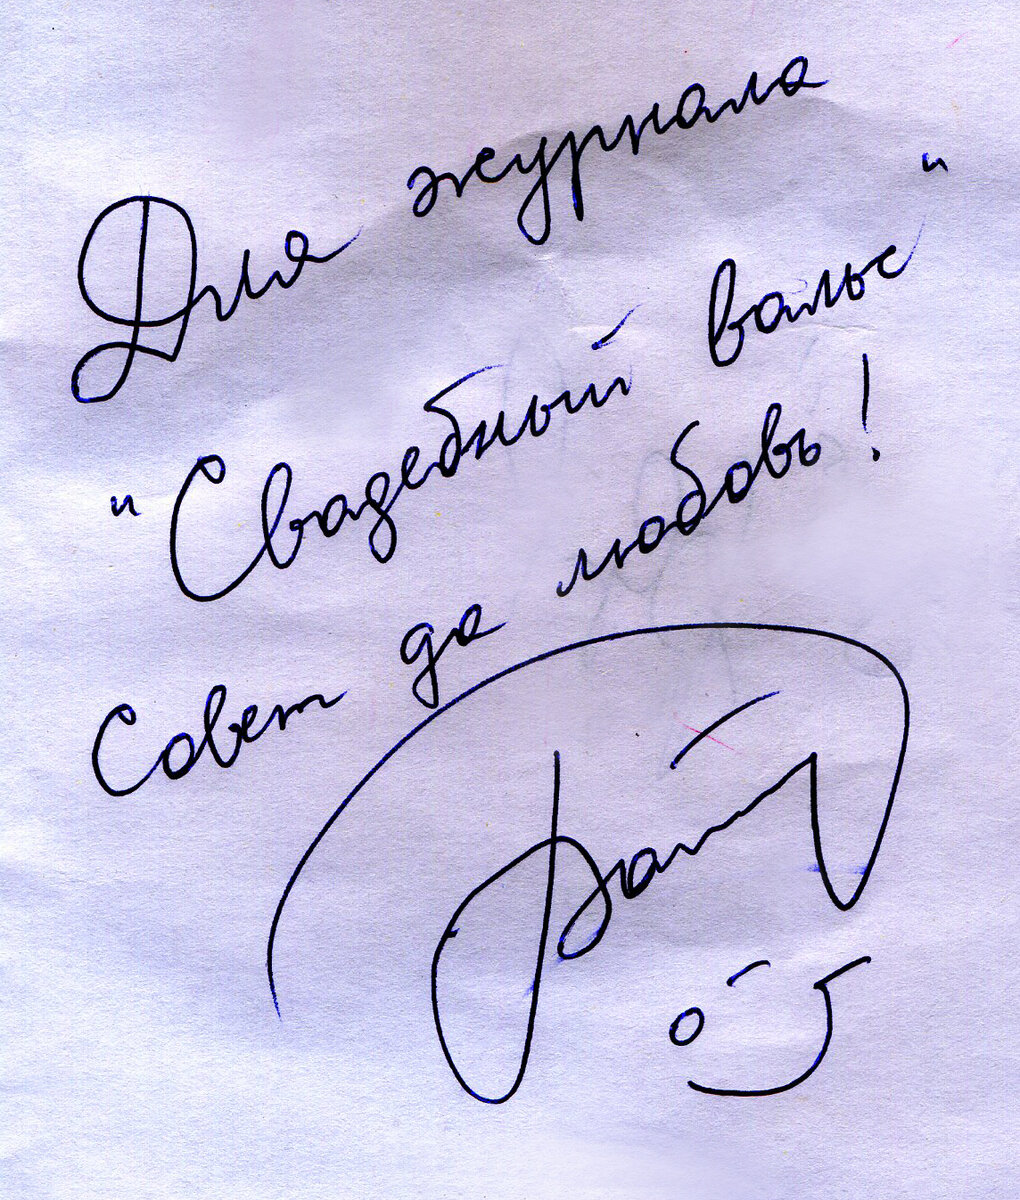 Для журнала
"Свадебный вальс"
Совет да любовь!